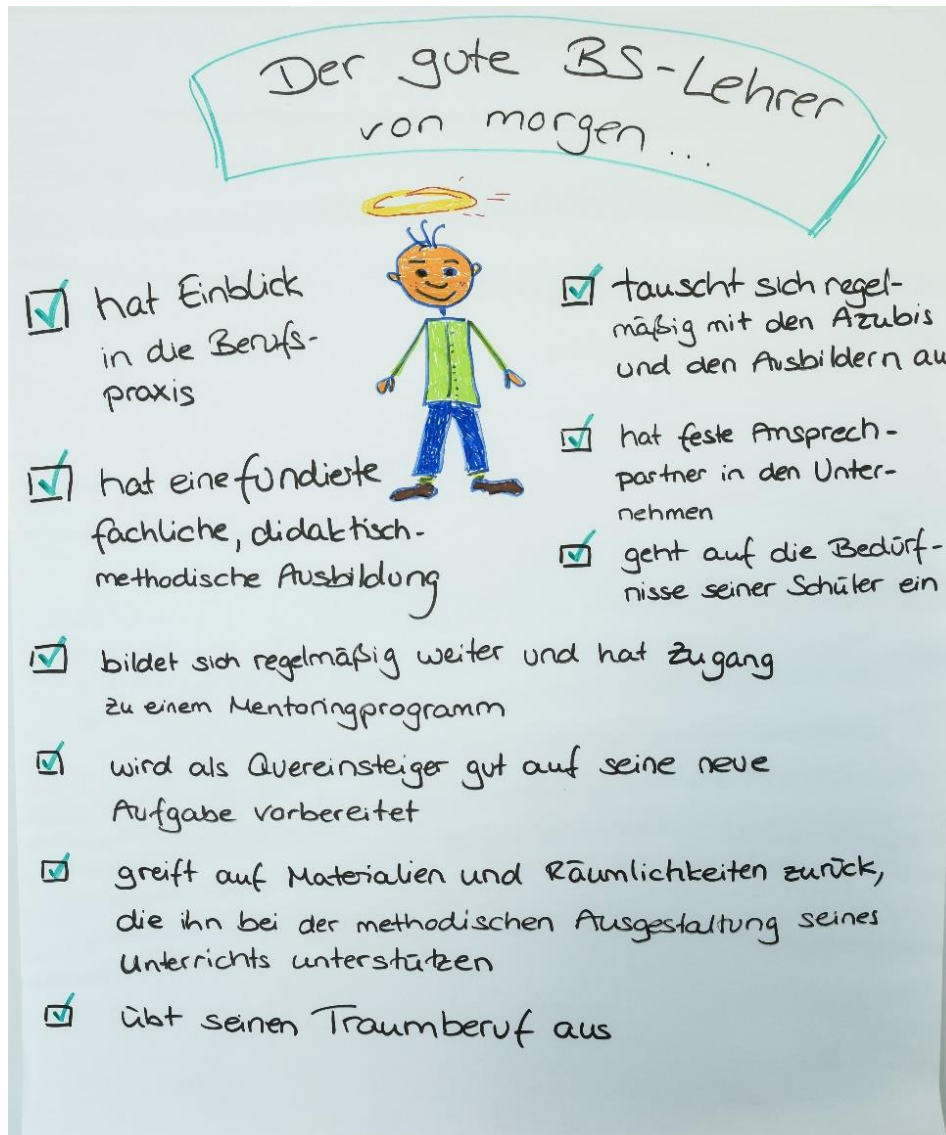 Der gute BS-Lehrer
von morgen ...
hat Einblick
in die Berufs-
praxis
hat eine fundierte
fachliche, didaktisch-
methodische Ausbildung
tauscht sich regel-
mäßig mit den Azubis
und den Ausbildern au
hat feste Ansprech-
partner in den Unter-
nehmen
geht auf die Bedürf-
nisse seiner Schüler ein
bildet sich regelmäßig weiter und hat Zugang
zu einem Mentoringprogramm
wird als Quereinsteiger gut auf seine neue
Aufgabe vorbereitet
greift auf Materialien und Räumlichkeiten zurück,
die ihn bei der methodischen Ausgestaltung seines
Unterrichts unterstützen
übt seinen Traumberuf aus